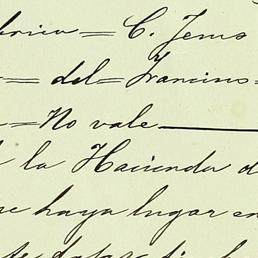 brica = C. Jesus
= del = Francisco =
= No vale
la Hacienda d
e haya lugar en